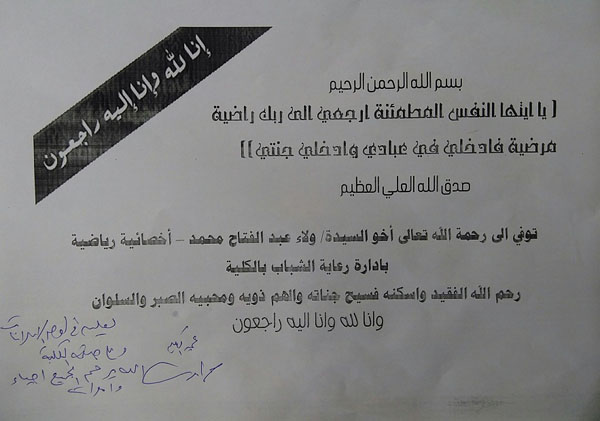 إنا لله وإنا إليه راجعون
بسم الله الرحمن الرحيم
( يا ايتها النفس المطمئنة ارجعي الى ربك راضية
مرضية فادخلي في عبادي وادخلي جنتي ))
صدق الله العلي العظيم
توفي الى رحمة الله تعالى أخو السيدة/ ولاء عبد الفتاح محمد - أخصائية رياضية
بادارة رعاية الشباب بالكلية
رحم الله الفقيد واسكنه فسيح جناته والهم ذويه ومحبيه الصبر والسلوان
وانا لله وانا اليه راجعون
الله يرحم الجميع احياء